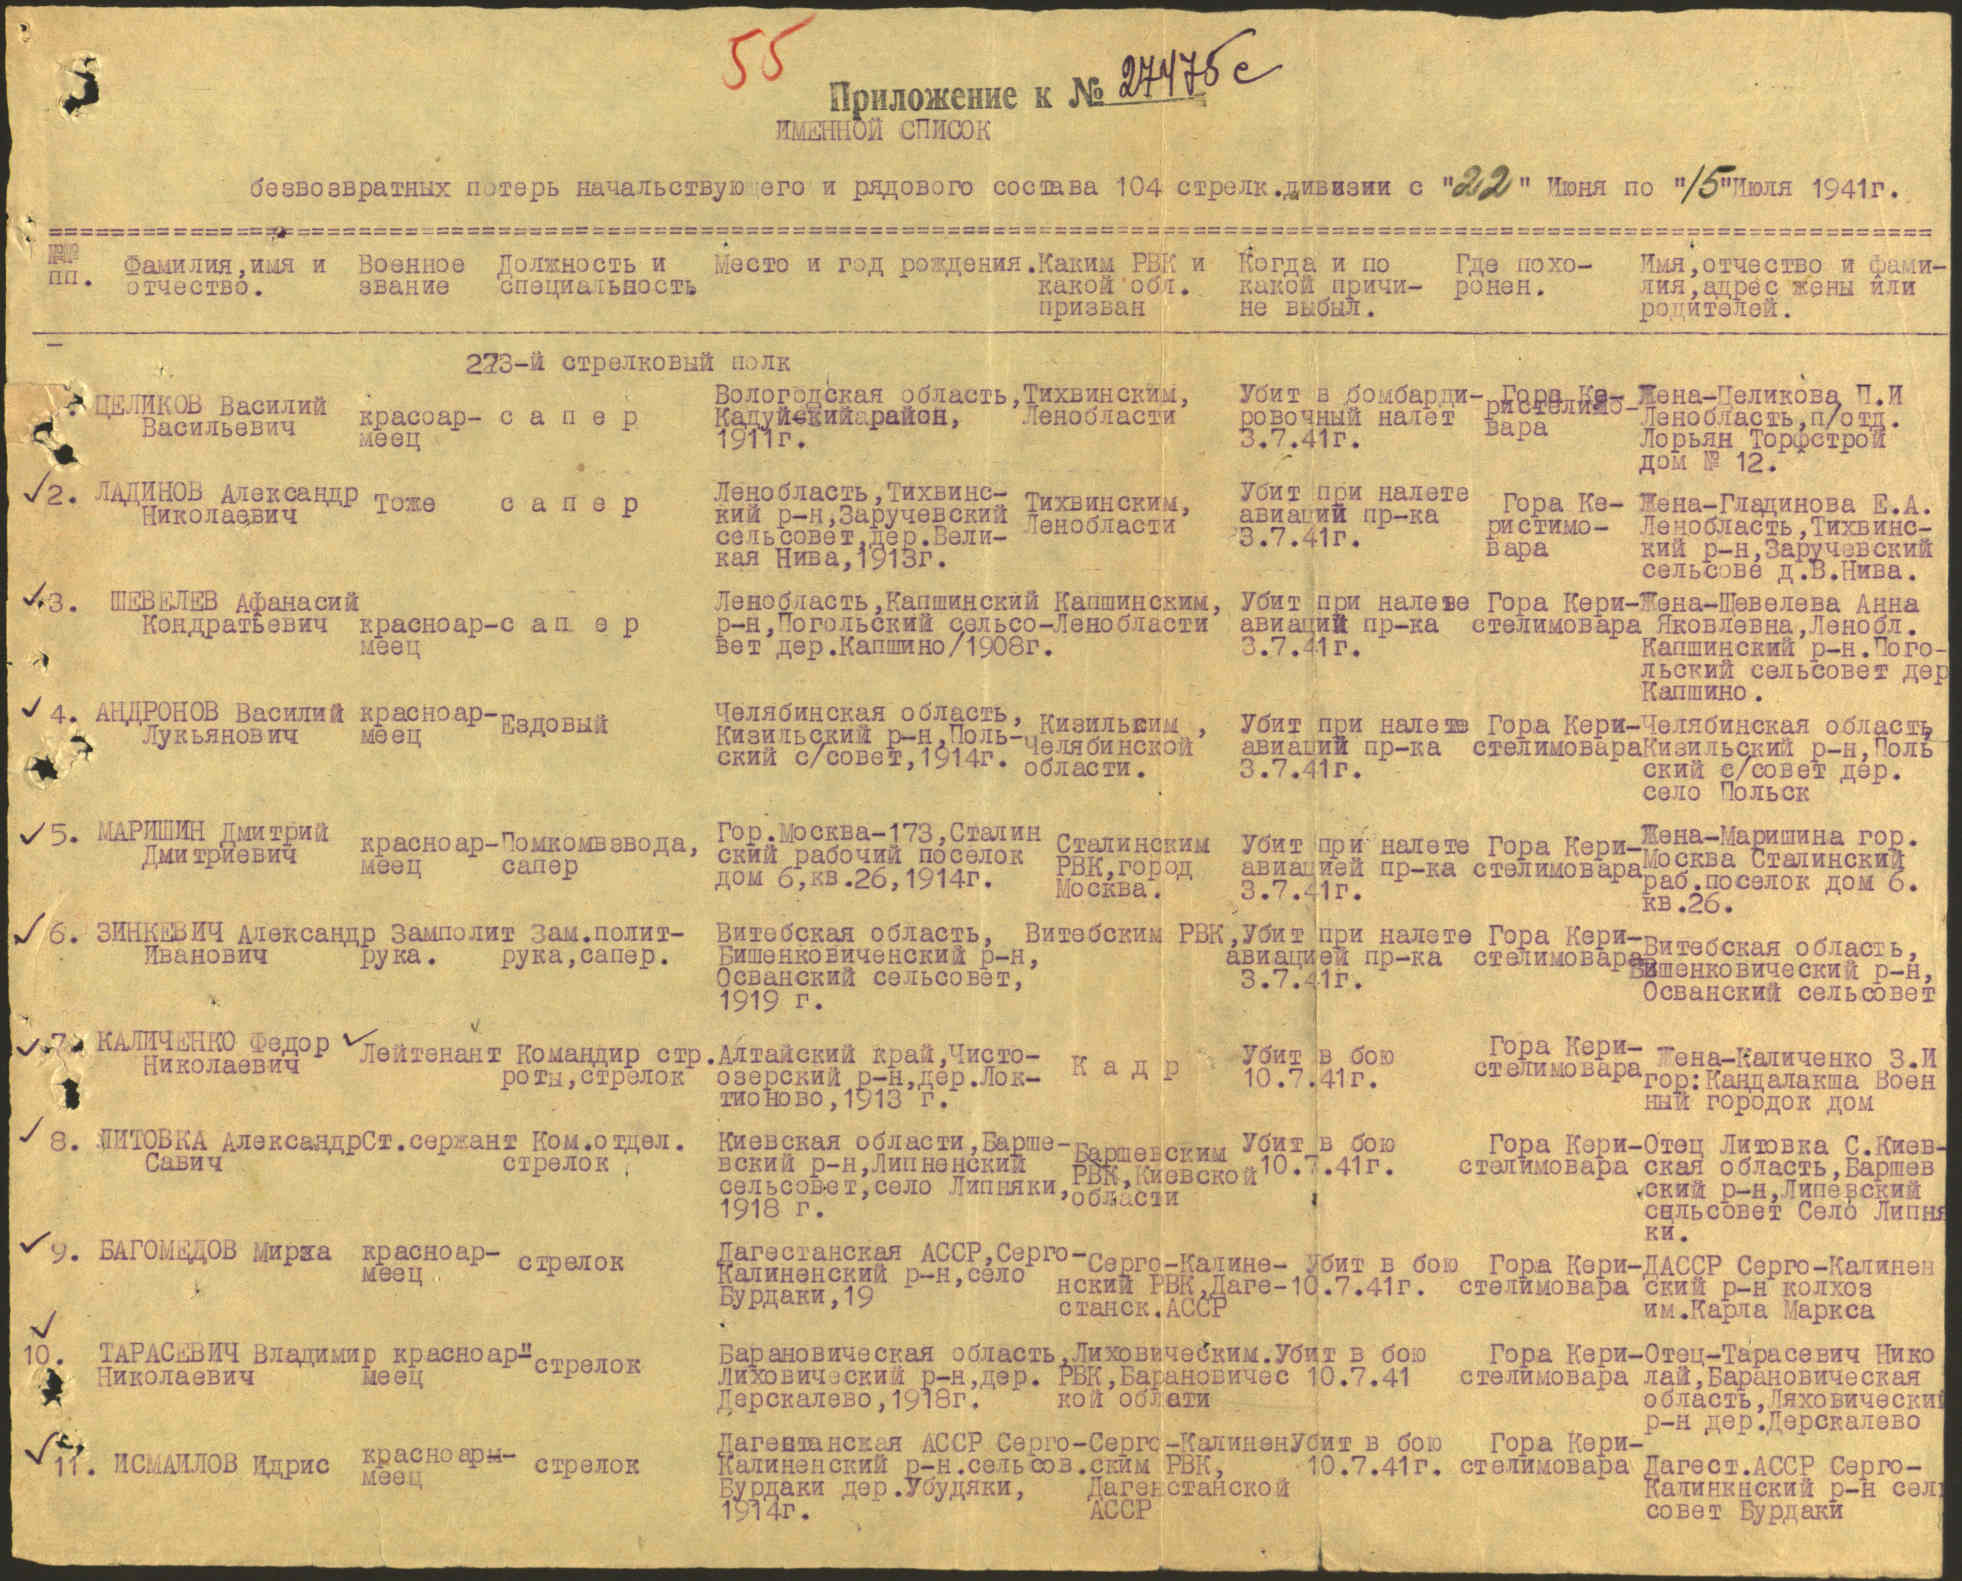 55
Приложение к № 27475с
ИМЕННОЙ СПИСОК
безвозвратных потерь начальствующего и рядового состава 104 стрелк.дивизии с "22" Июня по "15"Июля 1941г.
№№ пп. Фамилия,имя и отчество. Военное звание Должность и специальность Место и год рождения. Каким РВК и какой обл. призван Когда и по какой причи-не выбыл. Где похо-ронен. Имя,отчество и фами-лия,адрес жены или родителей.
273-й стрелковый полк
ЦЕЛИКОВ Василий Васильевич красоар-меец с а п е р Вологодская область, Кадуйский район, 1911г. Тихвинским, Ленобласти Убит в бомбарди-ровочный налет 3.7.41г. Гора Ке-ристелимо-вара Жена-Целикова П.И Ленобласть,п/отд. Лорьян Торфстрой дом № 12.
2. ЛАДИНОВ Александр Николаевич Тоже с а п е р Ленобласть,Тихвинс-кий р-н,Заручевский сельсовет,дер.Вели-кая Нива,1913г. Тихвинским, Ленобласти Убит при налете авиаций пр-ка 3.7.41г. Гора Ке-ристимо-вара Жена-Гладинова Е.А. Ленобласть,Тихвинс-кий р-н,Заручевский сельсове д.В.Нива.
3. ШЕВЕЛЕВ Афанасий Кондратьевич красноар-меец с а п е р Ленобласть,Капшинский р-н,Погольский сельсо-вет дер.Капшино/1908г. Капшинским, Ленобласти Убит при налете авиаций пр-ка 3.7.41г. Гора Кери-стелимовара Жена-Шевелева Анна Яковлевна,Ленобл. Капшинский р-н.Пого-льский сельсовет дер Капшино.
4. АНДРОНОВ Василий Лукьянович красноар-меец Ездовый Челябинская область, Кизильский р-н,Поль-ский с/совет,1914г. Кизильким , Челябинской области. Убит при налете авиаций пр-ка 3.7.41г. Гора Кери-стелимовара Челябинская область, Кизильский р-н,Поль ский с/совет дер. село Польск
5. МАРИШИН Дмитрий Дмитриевич красноар-меец Помкомвзвода, сапер Гор.Москва-173,Сталин ский рабочий поселок дом 6,кв.26,1914г. Сталинским РВК,город Москва. Убит при налете авиацией пр-ка 3.7.41г. Гора Кери-стелимовара Жена-Маришина гор. Москва Сталинский раб.поселок дом 6. кв.26.
6. ЗИНКЕВИЧ Александр Иванович Замполит рука. Зам.полит-рука,сапер. Витебская область, Бишенковиченский р-н, Осванский сельсовет, 1919 г. Витебским РВК, Убит при налете авиацией пр-ка 3.7.41г. Гора Кери-стелимовара Витебская область, Бишенковический р-н, Осванский сельсовет
7. КАЛИЧЕНКО Федор Николаевич Лейтенант Командир стр. роты,стрелок Алтайский край,Чисто-озерский р-н,дер.Лок-тионово,1913 г. К а д р Убит в бою 10.7.41г. Гора Кери-стелимовара Жена-Каличенко З.И гор:Кандалакша Воен ный городок дом
8. ЛИТОВКА Александр Савич Ст.сержант Ком.отдел. стрелок Киевская области,Барше-вский р-н,Липненский сельсовет,село Липняки, 1918 г. Баршевским РВК,Киевской области Убит в бою 10.7.41г. Гора Кери-стелимовара Отец Литовка С.Киев-ская область,Баршев ский р-н,Липевский сельсовет Село Липня ки.
9. БАГОМЕДОВ Мирза красноар-меец стрелок Дагестанская АССР,Серго-Калиненский р-н,село Бурдаки,19 Серго-Калине-нский РВК,Даге-станск.АССР Убит в бою 10.7.41г. Гора Кери-стелимовара ДАССР Серго-Калинен ский р-н колхоз им.Карла Маркса
10. ТАРАСЕВИЧ Владимир Николаевич красноар-меец стрелок Барановическая область, Лиховический р-н,дер. Дерскалево,1918г. Лиховическим. РВК,Барановичес кой облати Убит в бою 10.7.41 Гора Кери-стелимовара Отец-Тарасевич Нико лай,Барановическая область,Ляховический р-н дер.Дерскалево
11. ИСМАИЛОВ Идрис красноарм-меец стрелок Дагестанская АССР Серго-Калиненский р-н.сельсов. Бурдаки дер.Убудяки, 1914г. Серго-Калинен ским РВК, Дагенстанской АССР Убит в бою 10.7.41г. Гора Кери-стелимовара Дагест.АССР Серго-Калинкнский р-н сель совет Бурдаки